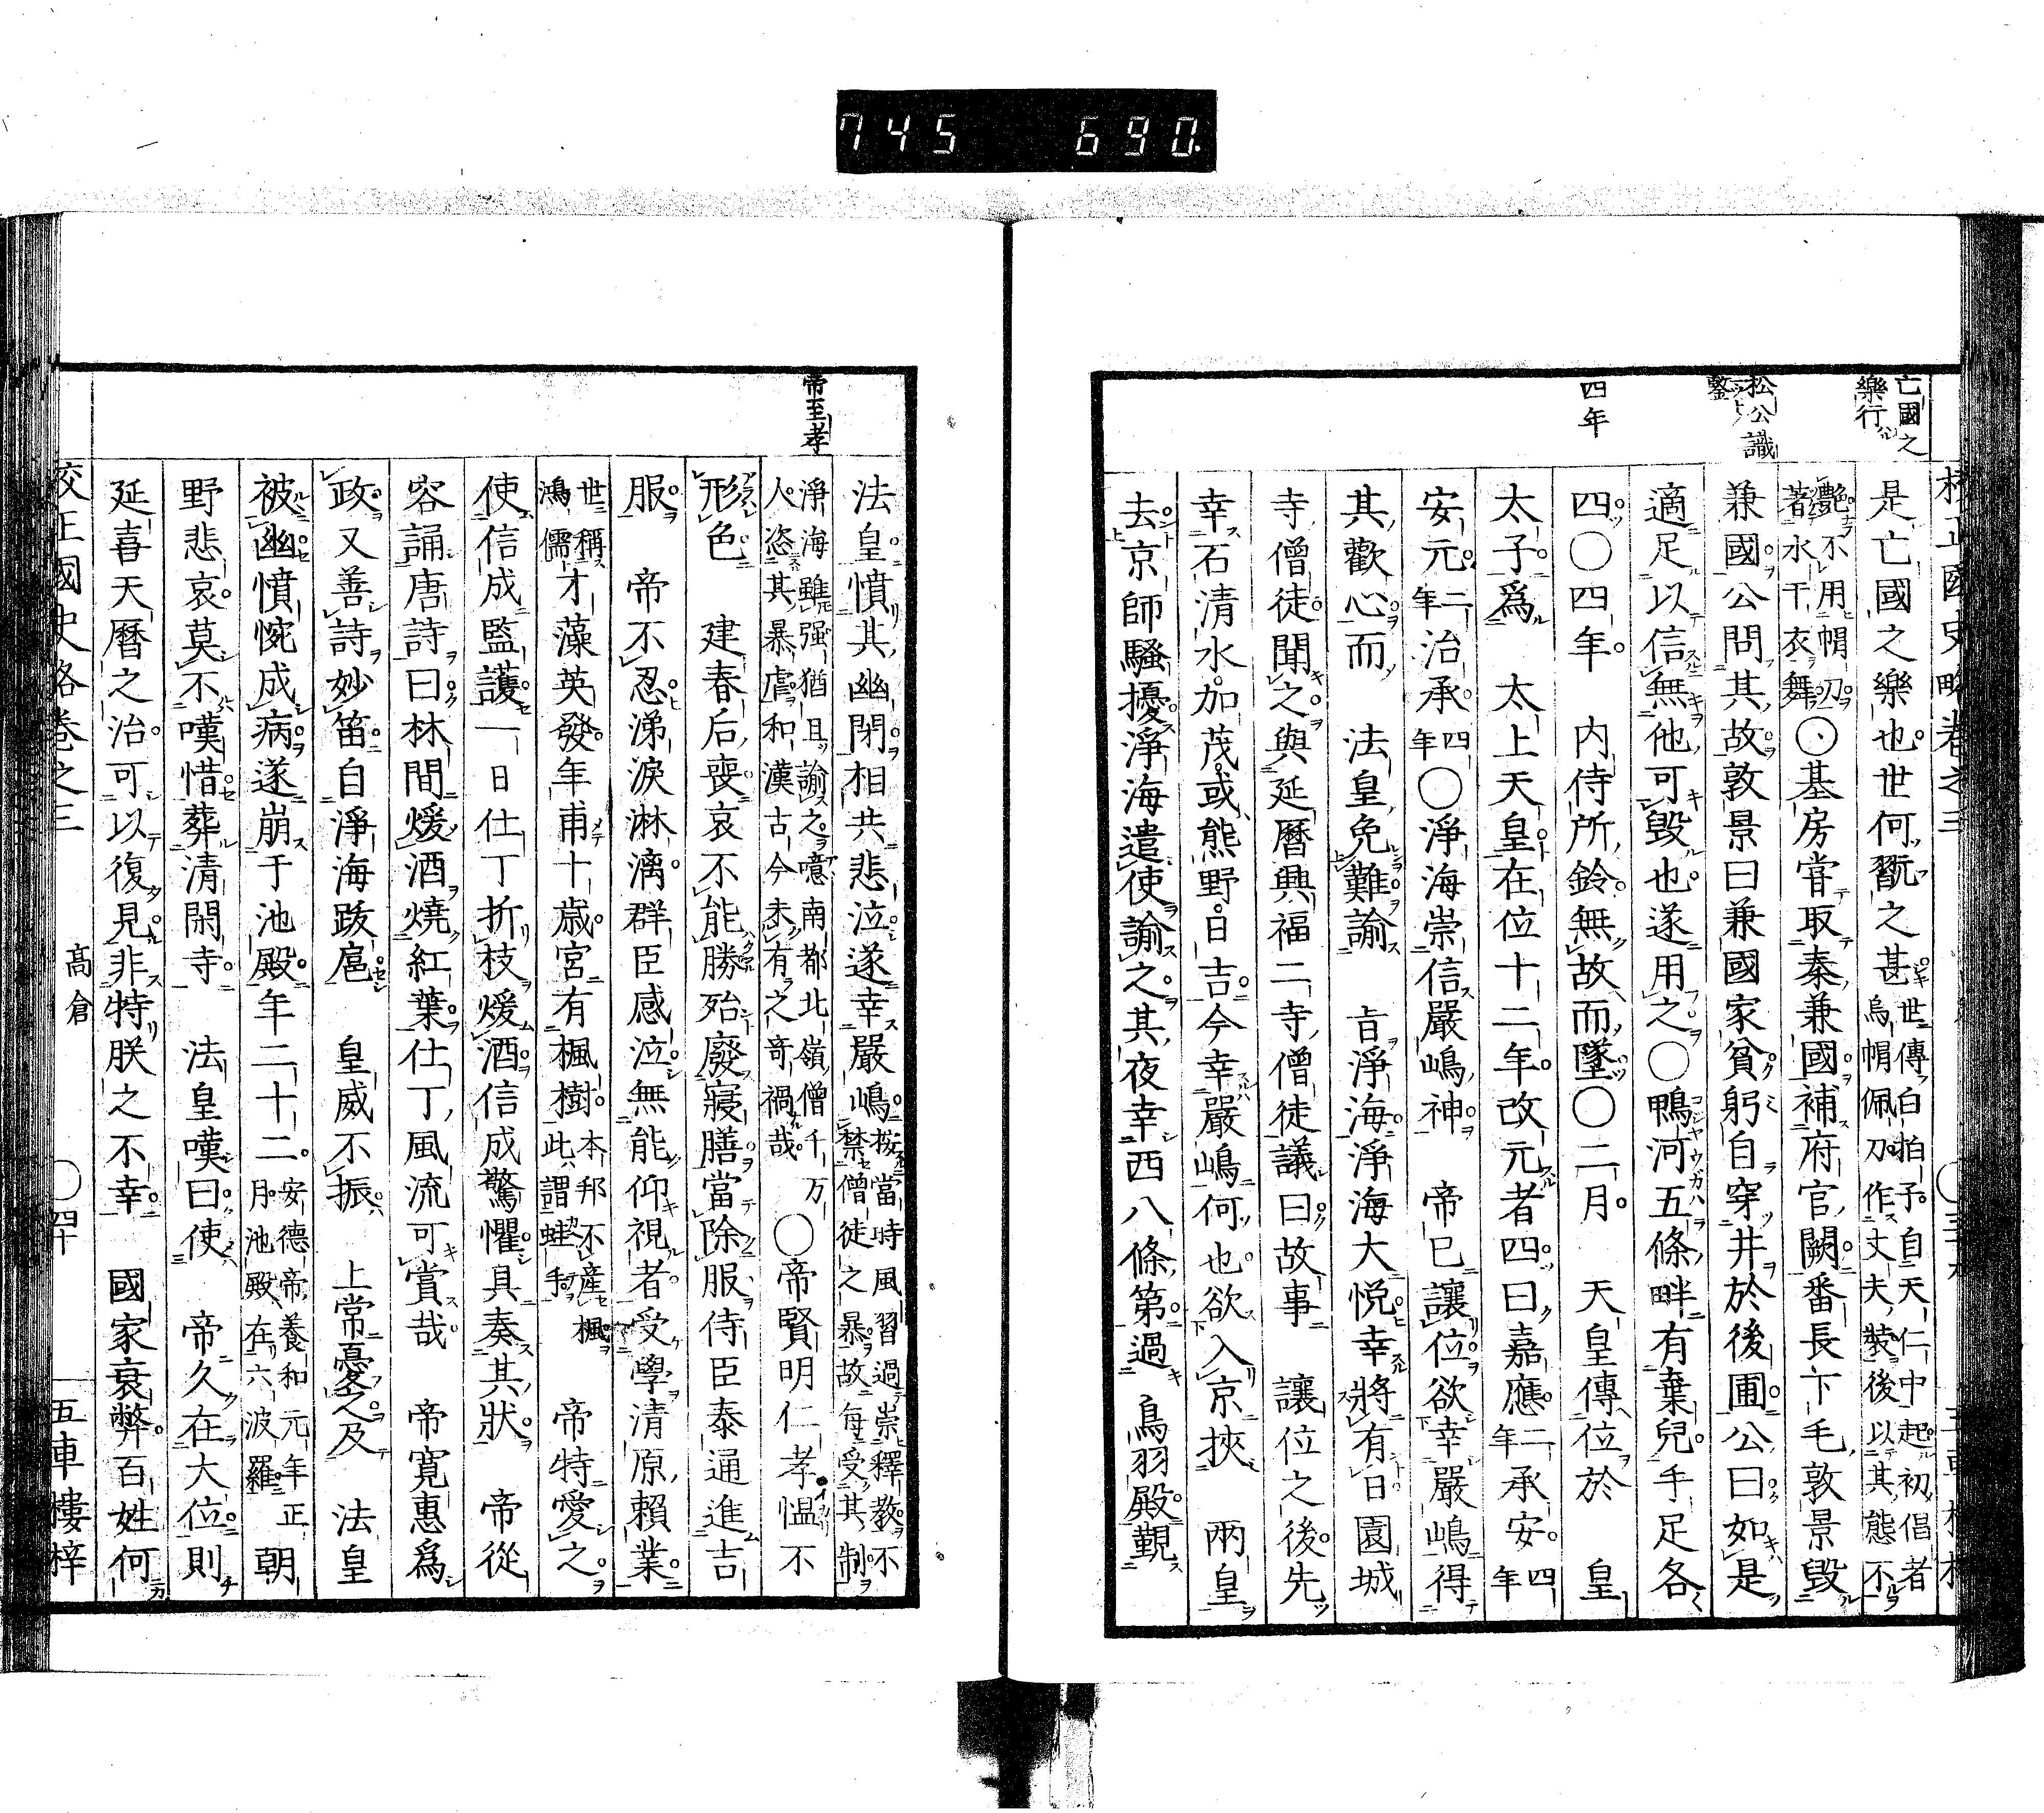 745 690.
亡國之
樂行
松公識
鑒
四年
校正國史略卷之三
是亡國之樂也世何翫之甚世傳白拍子自天仁中起初倡者
烏帽佩刀作丈夫裝後以其態不
艷不用帽刀
著水干衣舞○基房嘗取秦兼國補府官闕番長下毛敦景毀
兼國公問其故敦景曰兼國家貧躬自穿井於後圃公曰如是
適足以信無他可毀也遂用之○鴨河五條畔有棄兒手足各
四○四年 内侍所鈴無故而墜○二月 天皇傳位於 皇
太子爲 太上天皇在位十二年改元者四曰嘉應二年承安四年
安元二年治承四年○淨海崇信嚴嶋神 帝已讓位欲幸嚴嶋得
其歡心而 法皇免難諭 旨淨海淨海大悅幸將有日園城
寺僧徒聞之與延曆興福二寺僧徒議曰故事 讓位之後先
幸石清水加茂或熊野日吉今幸嚴嶋何也欲入京挾 兩皇
去京師騷擾淨海遣使諭之其夜幸西八條第過 鳥羽殿覲
帝至孝
法皇憤其幽閉相共悲泣遂幸嚴嶋按當時風習過崇釋教不
禁僧徒之暴故每受其制
淨海雖强猶且諭之噫南都北嶺僧千万
人恣其暴虐和漢古今未有之奇禍哉○帝賢明仁孝慍不
形色 建春后喪哀不能勝殆廢寢膳當除服侍臣泰通進吉
服 帝不忍涕淚淋漓群臣感泣無能仰視者受學清原賴業
世稱
鴻儒才藻英發年甫十歲宮有楓樹本邦不產楓
此謂蛙手 帝特愛之
使信成監護一日仕丁折枝煖酒信成驚懼具奏其狀 帝從
容誦唐詩曰林間煖酒燒紅葉仕丁風流可賞哉 帝寬惠爲
政又善詩妙笛自淨海跋扈 皇威不振 上常憂之及 法皇
被幽憤惋成病遂崩于池殿年二十二安德帝養和元年正
月池殿在六波羅 朝
野悲哀莫不嘆惜葬清閑寺 法皇嘆曰使 帝久在大位則
延喜天曆之治可以復見非特朕之不幸 國家衰弊百姓何
校正國史略卷之三 高倉 ○四十 五車樓梓